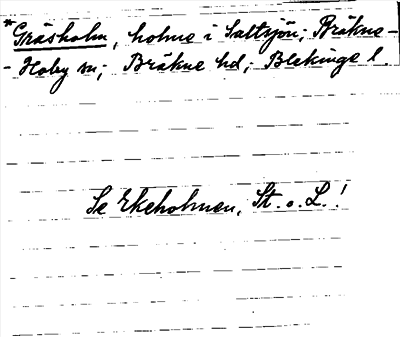 *Gräsholm, holme i Saltsjön; Bräkne-
-Hoby sn; Bräkne hd; Blekinge l.
Se Ekeholmen, St. o. L.!